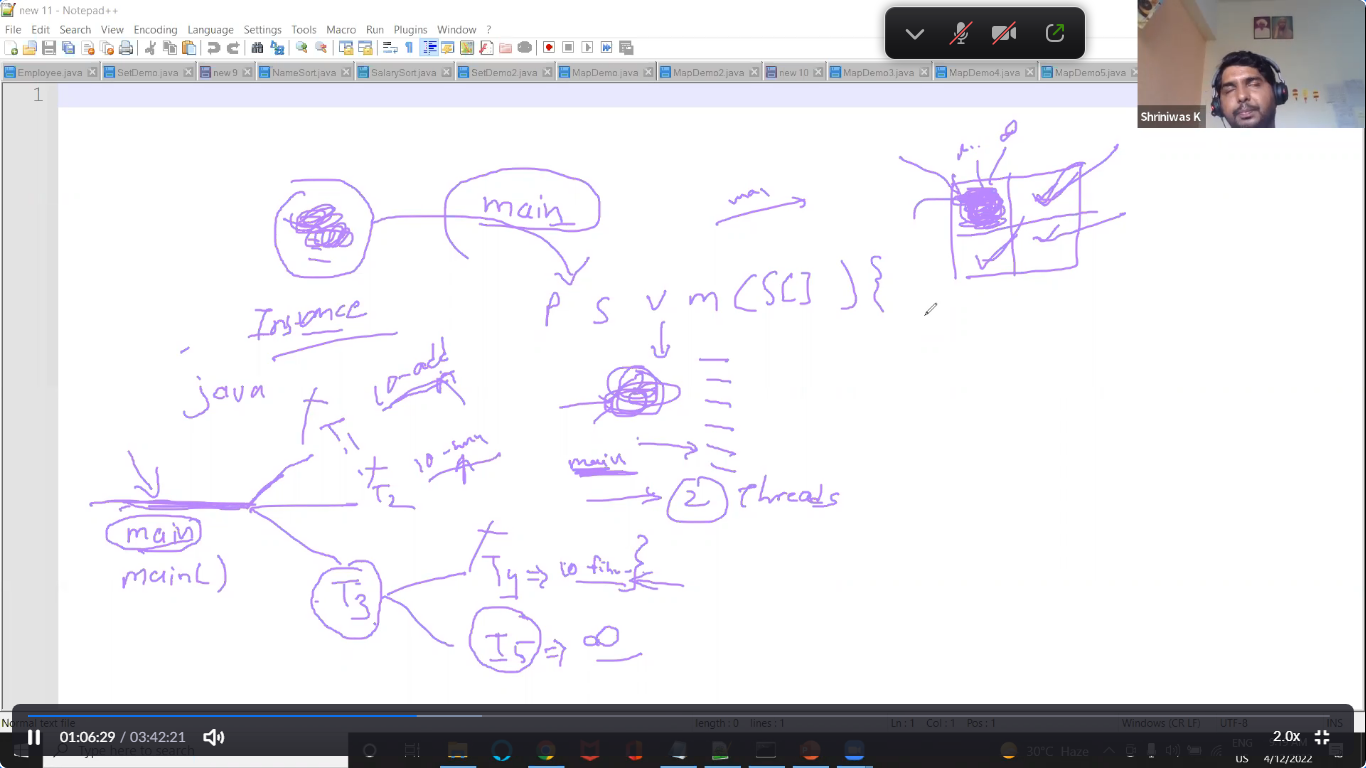 new 11 - Notepad++
File Edit Search View Encoding Language Settings Tools Macro Run Plugins Window ?
Employee.java SetDemo.java new 9 NameSort.java SalarySort.java SetDemo2.java MapDemo.java MapDemo2.java new 10 MapDemo3.java MapDemo4.java MapDemo5.java
Shriniwas K
1
∞
main
P S V m (S[] ) {
Instance
java
10-add
T1
T2
main
2 Threads
main
main()
T3
T4 => 10 }
T5 => ∞
Normal text file length : 0 lines : 1 Ln : 1 Col : 1 Pos : 1 Windows (CR LF) UTF-8 INS
01:06:29 / 03:42:21
2.0x
Type here to search
30°C Haze
ENG
US
4/12/2022